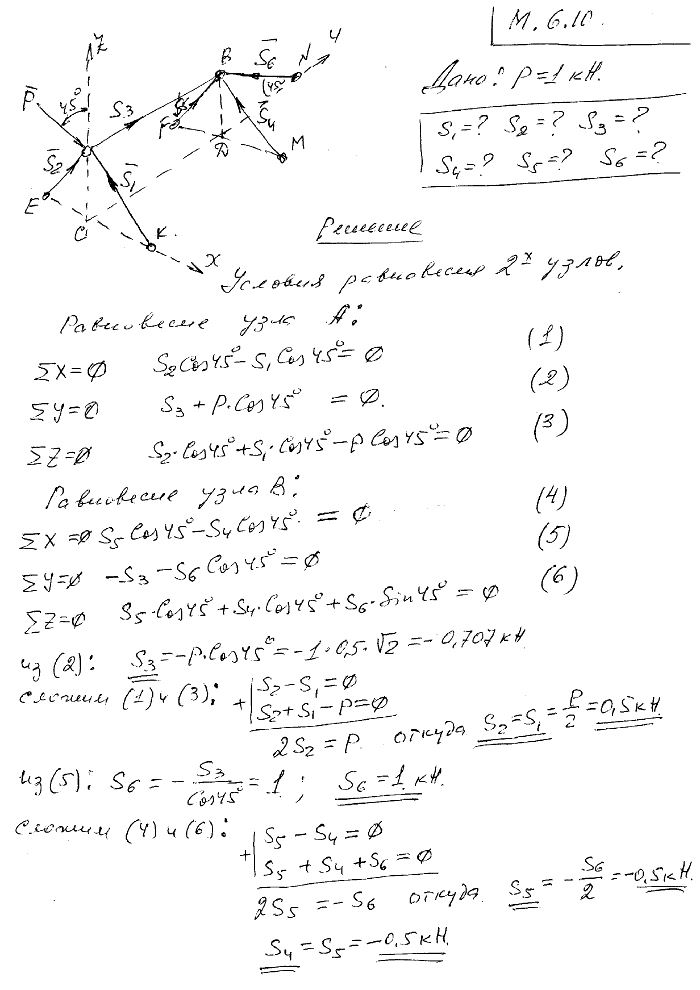 М. 6.10.
Дано: P=1 кН.
S₁=? S₂=? S₃=?
S₄=? S₅=? S₆=?
Z
P̅
45°
S₃
S̅₂
S̅₁
E
O
K
X
B
S̅₆
N
y
45°
F
S̅₄
D
M
Решение
Условия равновесия 2ˣ узлов.
Равновесие узла A:
ΣX=0 S₂Cos45°−S₁Cos45°=0 (1)
ΣY=0 S₃+P·Cos45°=0. (2)
ΣZ=0 S₂·Cos45°+S₁·Cos45°−P Cos45°=0 (3)
Равновесие узла B:
ΣX=0 S₅Cos45°−S₄Cos45°=0 (4)
ΣY=0 −S₃−S₆Cos45°=0 (5)
ΣZ=0 S₅·Cos45°+S₄·Cos45°+S₆·Sin45°=0 (6)
из (2): S₃=−P·Cos45°=−1·0,5·√2=−0,707 кН
сложим (1) и (3): + S₂−S₁=0
S₂+S₁−P=0
2S₂=P. откуда S₂=S₁=P/2=0,5кН
из (5): S₆=−S₃/Cos45°=1; S₆=1 кН.
сложим (4) и (6): + S₅−S₄=0
S₅+S₄+S₆=0
2S₅=−S₆ откуда S₅=−S₆/2=−0,5кН.
S₄=S₅=−0.5кН.